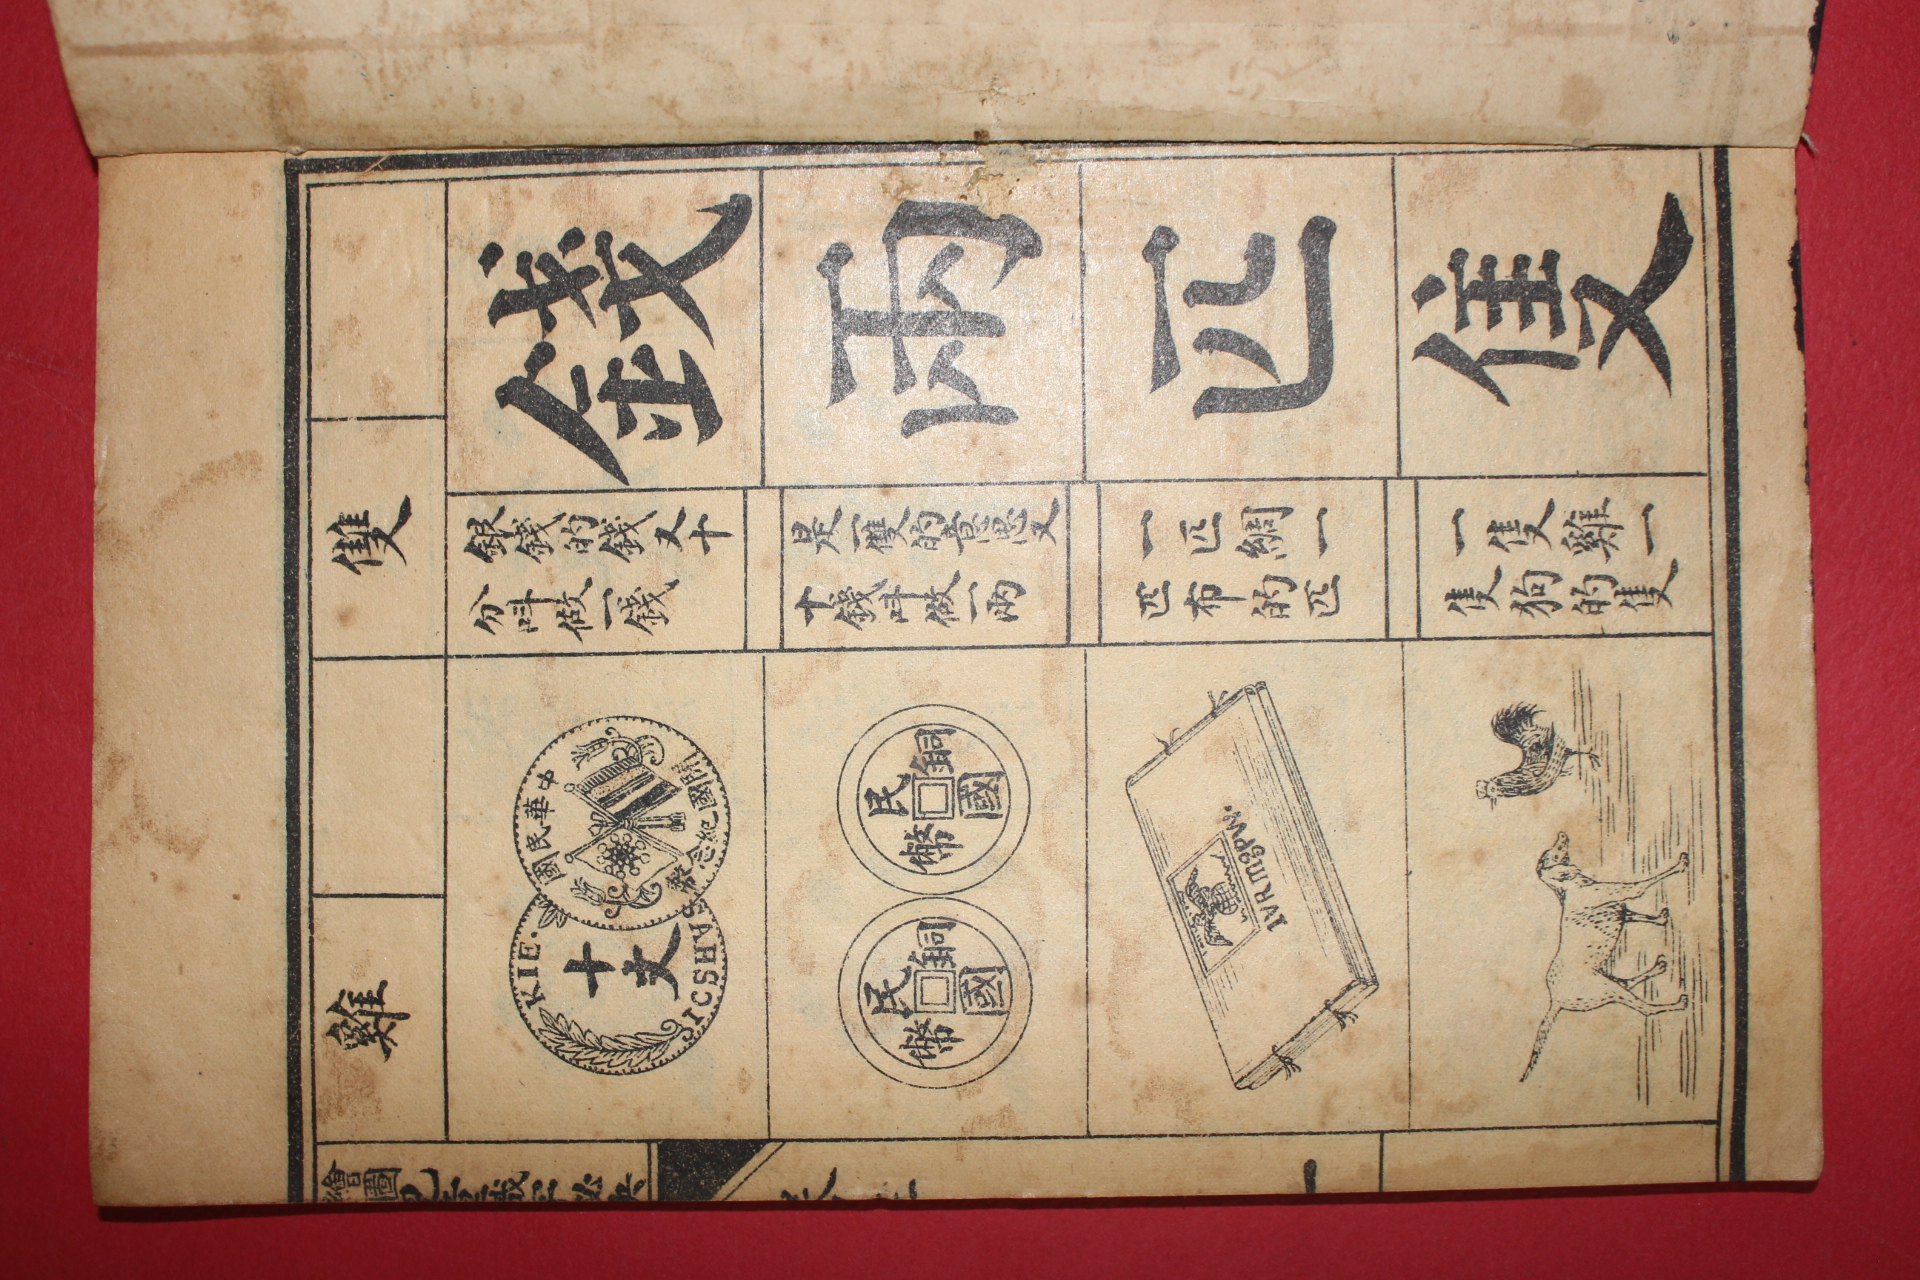 雙
雞
錢
銀錢的錢又十
分呌做一錢
KIE.
十文
SAHSOI
中華民國
開國紀念幣
兩
是一雙的意思又
十錢呌做一兩
民國銅幣
民國銅幣
匹
一匹綢一
匹布的匹
1VRM3PW.
隻
一隻雞一
隻狗的隻
繪圖兒童識字秘訣
一